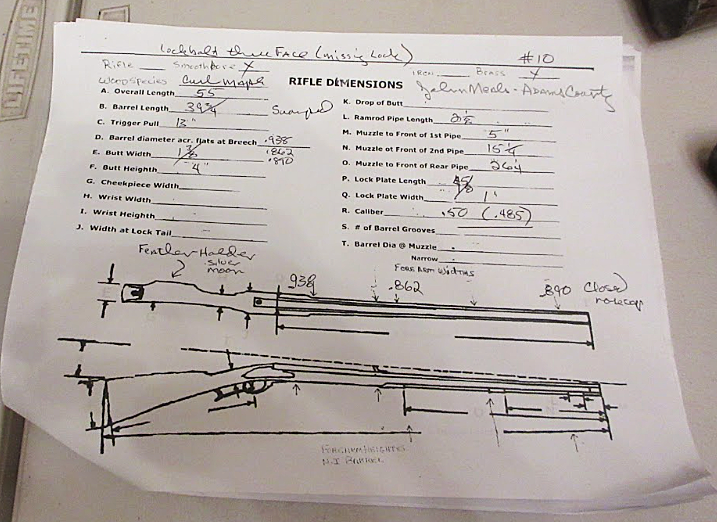 LIFETIME
Lockbolt three Face (missing Lock)
#10
Rifle ___ Smoothbore X
IRON ___ Brass X
Wood Species Curl Maple
RIFLE DIMENSIONS
John Meals - Adams County
A. Overall Length 55
B. Barrel Length 39 3/4 Swamped
C. Trigger Pull 13"
D. Barrel diameter acr. flats at Breech .938
.862
.890
E. Butt Width
F. Butt Heighth 4"
G. Cheekpiece Width
H. Wrist Width
I. Wrist Heighth
J. Width at Lock Tail
K. Drop of Butt
L. Ramrod Pipe Length
M. Muzzle to Front of 1st Pipe 5"
N. Muzzle ot Front of 2nd Pipe 15 1/4
O. Muzzle to Front of Rear Pipe 26 1/4
P. Lock Plate Length
Q. Lock Plate Width 1"
R. Caliber .50 (.485)
S. # of Barrel Grooves
T. Barrel Dia @ Muzzle
Narrow
Feather Holder
silver
moon
Fore Arm Widths
.938
.862
.890
Closed
nosecap
Forearm Heights